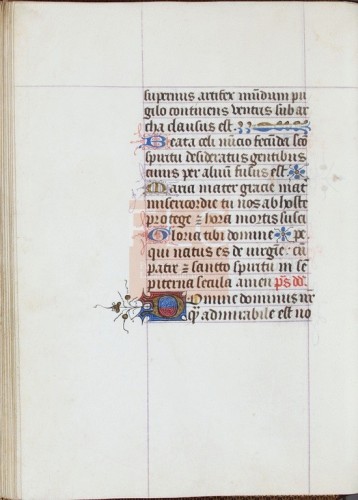 supernus artifex mūdum pu
gilo continens ventris sub ar
cha clausus est.
Beata celi nūcio fecūda sc̄o
spiritu desideratus gentibus
cuius per aluū fusus est
Maria mater gracie mat̄
misericordie tu nos ab hoste
protege ⁊ hora mortis susci
Gloria tibi domine pe
qui natus es de virgīe cū
patre ⁊ sancto spiritu in se
piterna secula amen ps̄ dd̄
Domine dominus nr̄
q̄ admirabile est no